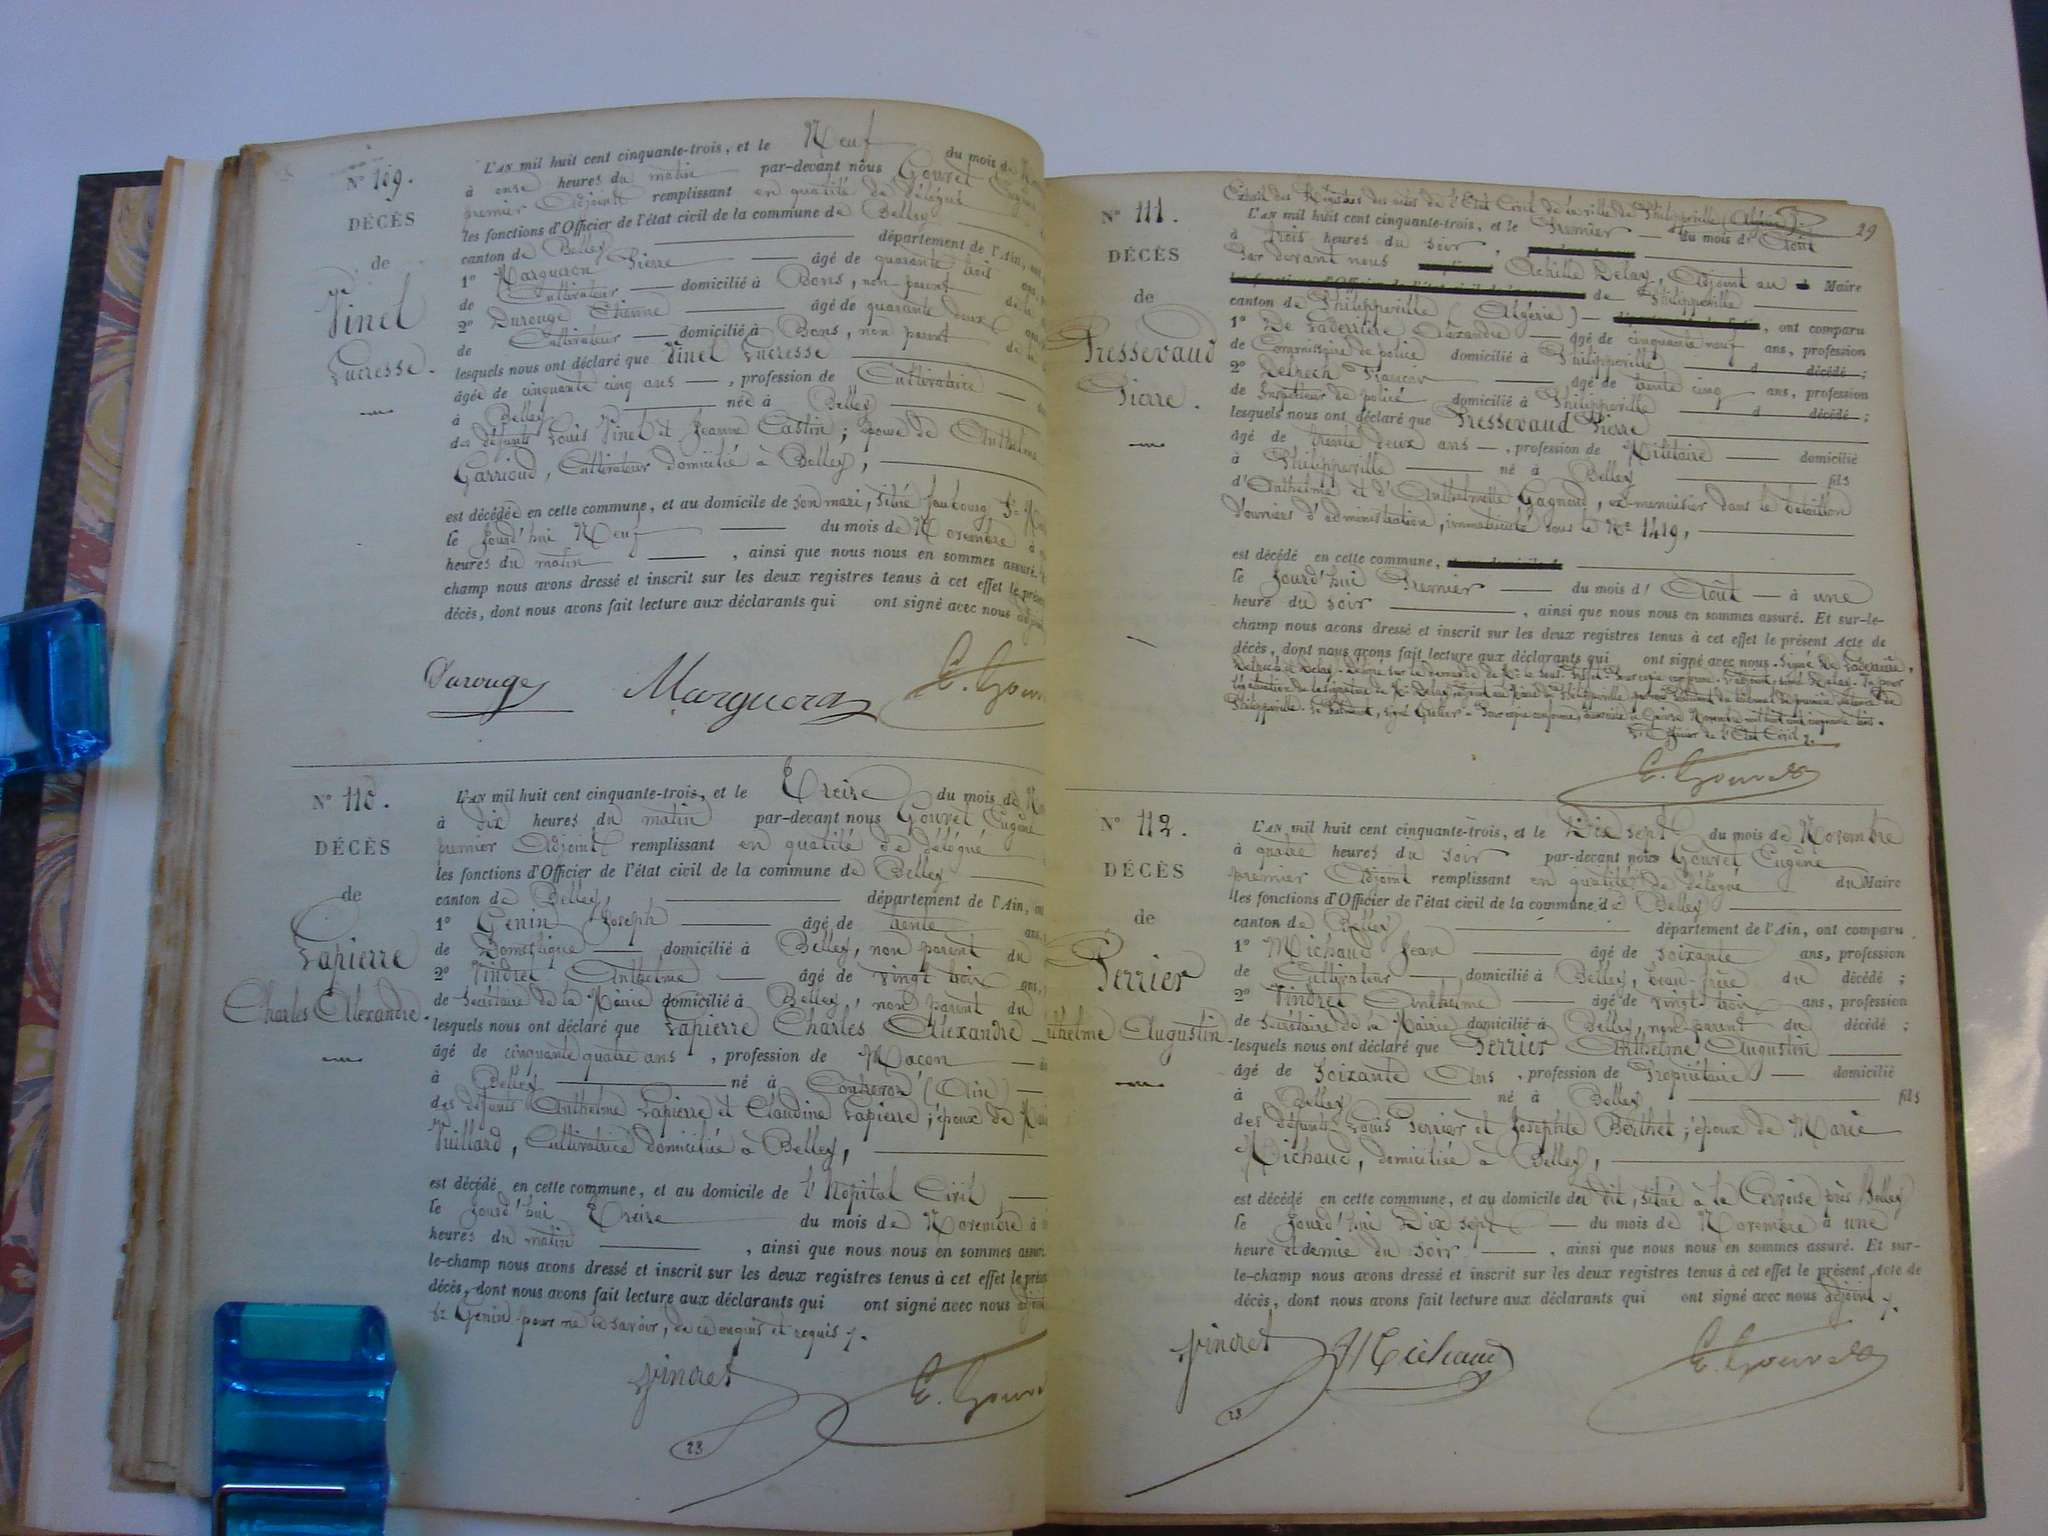 N° 109.
DÉCÈS
de
Vinel
Lucresse.
L'AN mil huit cent cinquante-trois, et le Neuf du mois de
à onze heures du matin par-devant nous Gouvet Eugène
premier Adjoint remplissant en qualité de délégué
les fonctions d'Officier de l'état civil de la commune de Belley
canton de Belley département de l'Ain, ont
1° Margueron Pierre âgé de quarante huit ans,
de Cultivateur domicilié à Bons, non parent de la
2° Durouge Etienne âgé de quarante deux ans,
de Cultivateur domicilié à Bons, non parent de la
lesquels nous ont déclaré que Vinel Lucresse
âgée de cinquante cinq ans, profession de Cultivatrice
à Belley née à Belley
des défunts Louis Vinel et Jeanne Castin; épouse de Anthelme
Garrioud, Cultivateur domicilié à Belley,
est décédée en cette commune, et au domicile de son mari, situé faubourg St
le jourd'hui Neuf du mois de Novembre à
heures du matin, ainsi que nous nous en sommes assuré.
champ nous avons dressé et inscrit sur les deux registres tenus à cet effet le présent
décès, dont nous avons fait lecture aux déclarants qui ont signé avec nous adjoint
Durouge Margueron E. Gouvet
N° 110.
DÉCÈS
de
Lapierre
Charles Alexandre.
L'AN mil huit cent cinquante-trois, et le Treize du mois de
à dix heures du matin par-devant nous Gouvet Eugène
premier Adjoint remplissant en qualité de délégué
les fonctions d'Officier de l'état civil de la commune de Belley
canton de Belley, département de l'Ain, ont
1° Genin Joseph âgé de trente ans,
de Domestique domicilié à Belley, non parent du
2° Vindret Anthelme âgé de vingt trois ans,
de Secrétaire de la Mairie domicilié à Belley, non parent du
lesquels nous ont déclaré que Lapierre Charles Alexandre
âgé de cinquante quatre ans, profession de Maçon
à Belley né à Contrevoz (Ain)
des défunts Anthelme Lapierre et Claudine Lapierre; époux de
Vuillard, Cultivatrice domiciliée à Belley,
est décédé en cette commune, et au domicile de l'Hôpital Civil,
le jourd'hui Treize du mois de Novembre à
heures du matin, ainsi que nous nous en sommes assuré.
le-champ nous avons dressé et inscrit sur les deux registres tenus à cet effet le présent
décès, dont nous avons fait lecture aux déclarants qui ont signé avec nous adjoint
Sr Genin pour ne le savoir, de ce enquis et requis.
Vindret E. Gouvet
23
29
N° 111.
DÉCÈS
de
Pressevaud
Pierre.
Extrait des Registres des actes de l'Etat Civil de la ville de Philippeville (Algérie)
L'AN mil huit cent cinquante-trois, et le Premier du mois d'Août
à trois heures du soir,
Par devant nous Achille Delay, Adjoint au Maire
de Philippeville
canton de Philippeville (Algérie), ont comparu
1° De Laderrière Alexandre âgé de cinquante neuf ans, profession
de Commissaire de police domicilié à Philippeville d décédé;
2° Delrech François âgé de trente cinq ans, profession
de Inspecteur de police domicilié à Philippeville d décédé;
lesquels nous ont déclaré que Pressevaud Pierre
âgé de trente deux ans, profession de Militaire domicilié
à Philippeville né à Belley fils
d'Anthelme et d'Anthelmette Gagneud, ex-menuisier dans le bataillon
d'ouvriers d'administration, immatriculé sous le N° 1419,
est décédé en cette commune,
le jourd'hui Premier du mois d'Août à une
heure du soir, ainsi que nous nous en sommes assuré. Et sur-le-
champ nous avons dressé et inscrit sur les deux registres tenus à cet effet le présent Acte de
décès, dont nous avons fait lecture aux déclarants qui ont signé avec nous. Signé De Laderrière,
Delrech et Delay. Délivré sur la demande de Mr le Sous-Préfet. Pour copie conforme. L'adjoint, signé Delay. Vu pour
légalisation de la signature de Mr Delay, adjoint au Maire de Philippeville, par nous Président du tribunal de première instance de
Philippeville. Le Président, signé. Pour copie conforme, transcrite à Novembre mil huit cent cinquante trois.
L'Officier de l'Etat Civil,
E. Gouvet
N° 112.
DÉCÈS
de
Perrier
Anthelme Augustin.
L'AN mil huit cent cinquante-trois, et le Dix sept du mois de Novembre
à quatre heures du soir par-devant nous Gouvet Eugène
premier Adjoint remplissant en qualité de délégué du Maire
les fonctions d'Officier de l'état civil de la commune de Belley
canton de Belley département de l'Ain, ont comparu
1° Michaud Jean âgé de soixante ans, profession
de Cultivateur domicilié à Belley, beau-frère du décédé;
2° Vindret Anthelme âgé de vingt trois ans, profession
de Secrétaire de la Mairie domicilié à Belley, non parent du décédé;
lesquels nous ont déclaré que Perrier Anthelme Augustin
âgé de Soixante Ans, profession de Propriétaire domicilié
à Belley né à Belley fils
des défunts Louis Perrier et Josephte Berthet; époux de Marie
Michaud, domiciliée à Belley,
est décédé en cette commune, et au domicile du dit, situé à la Cervoise près Belley
le jourd'hui Dix sept du mois de Novembre à une
heure et demie du soir, ainsi que nous nous en sommes assuré. Et sur-
le-champ nous avons dressé et inscrit sur les deux registres tenus à cet effet le présent Acte de
décès, dont nous avons fait lecture aux déclarants qui ont signé avec nous adjoint
Vindret JMichaud E. Gouvet
23